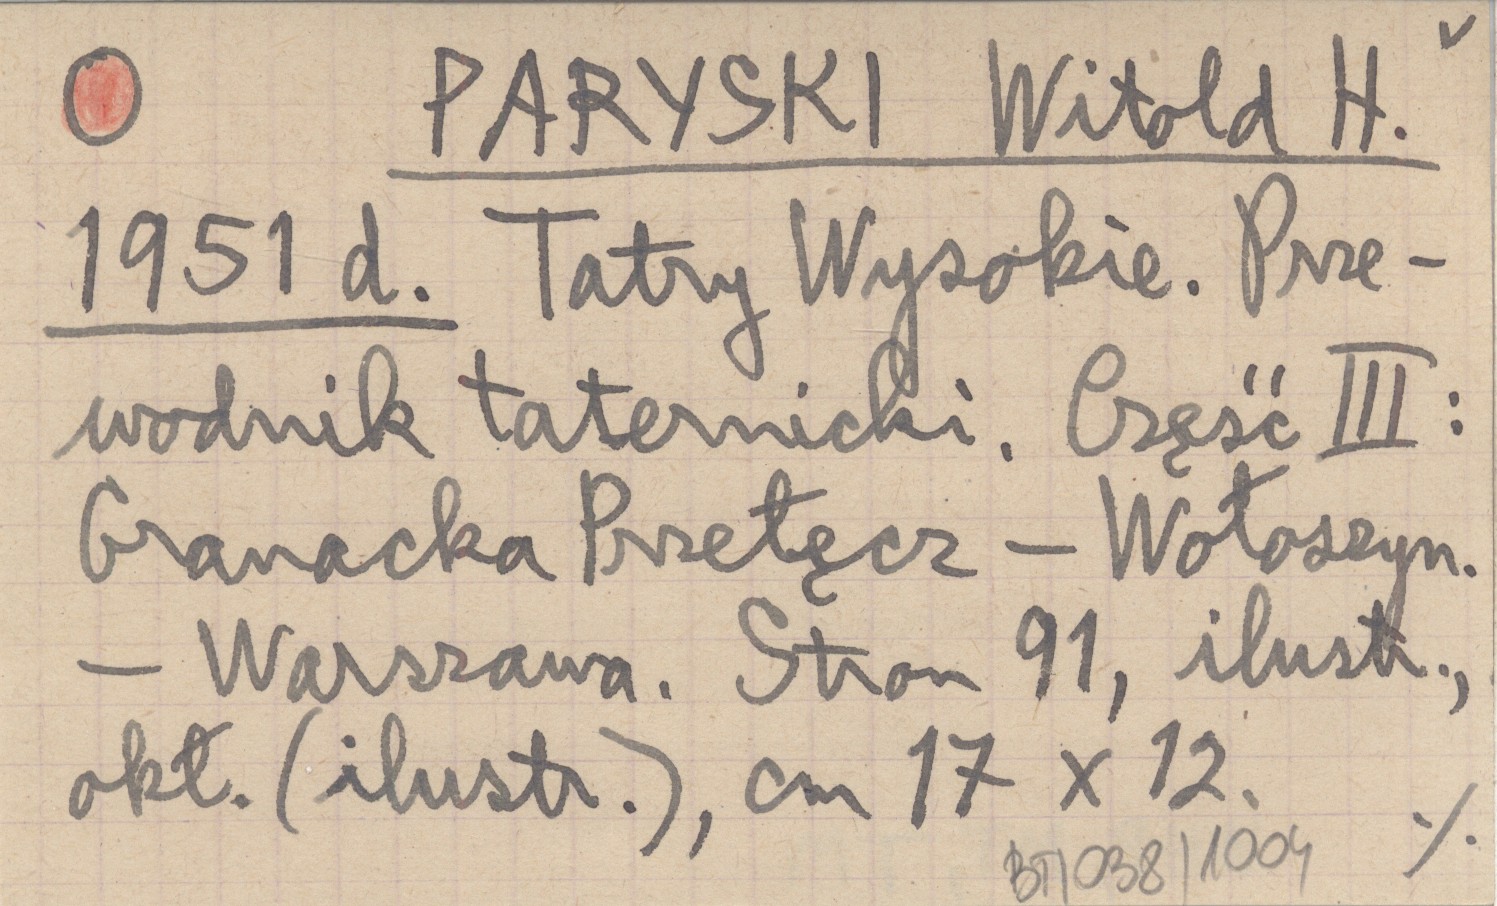 PARYSKI Witold H.
1951 d. Tatry Wysokie. Prze-
wodnik taternicki. Część III:
Granacka Przełęcz – Wołoszyn.
– Warszawa. Stron 91, ilustr.,
okł. (ilustr.), cm 17 x 12.
./.
BT/038/1004